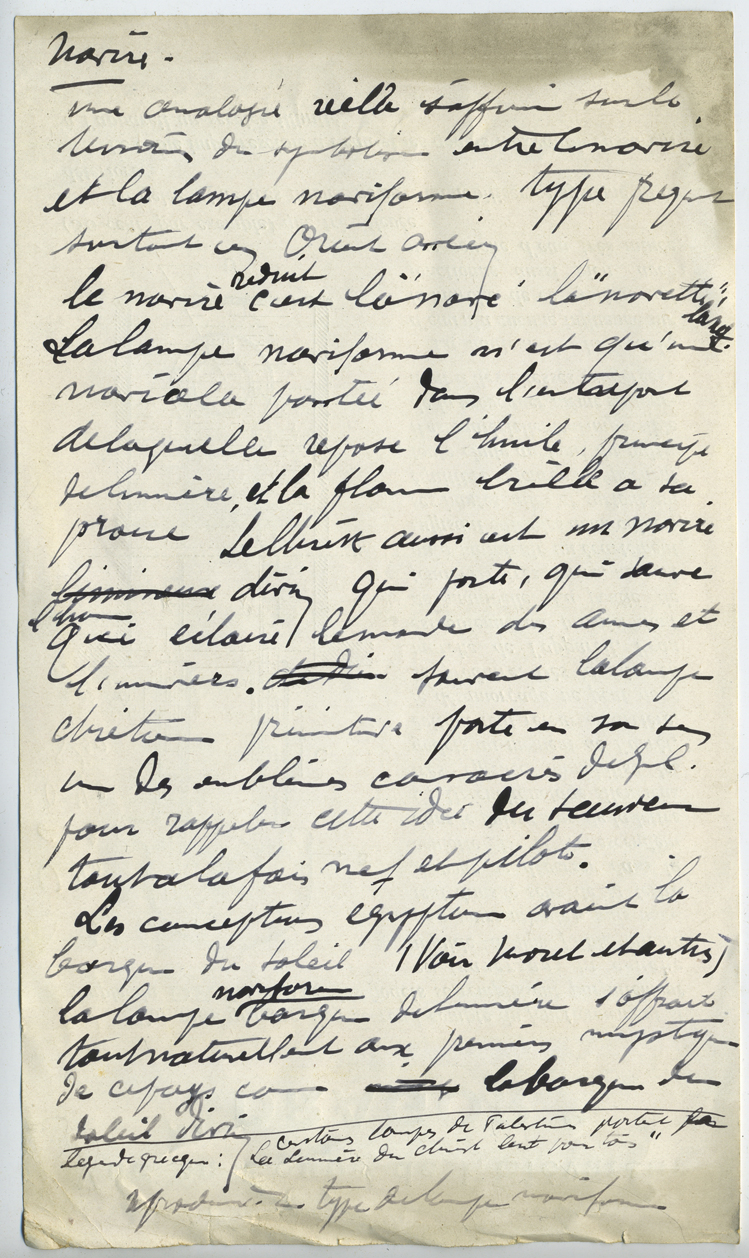 Navire.
une analogie réelle s'affirme sur le
terrain du symbolisme entre le navire
et la lampe naviforme. type fréquent
surtout en Orient
le navire réduit c'est la "nave" la "navette"
La lampe naviforme n'est qu'une
navicela portée dans l'
de laquelle repose l'huile, principe
de lumière, et la flamme brille a sa
proue Le Christ aussi est un navire
lumineux divin qui porte, qui sauve
l'hom
qui éclaire le monde des ames et
l'univers. souvent la lampe
chrétienne primitive porte en son sein
un des emblèmes consacrés de J.C.
pour rappeler cette idée du sauveur
tout a la fois nef et pilote.
Les conceptions egyptiennes avaient la
barque du soleil (Voir Moret et autres)
la lampe naviforme barque de lumière s'offrait
tout naturellement aux premiers mystiques
de ce pays comme la barque du
soleil divin
certaines lampes de Palestine portent la
legende grecque : "La Lumière du Christ luit pour tous"
reproduire le type de lampe naviforme